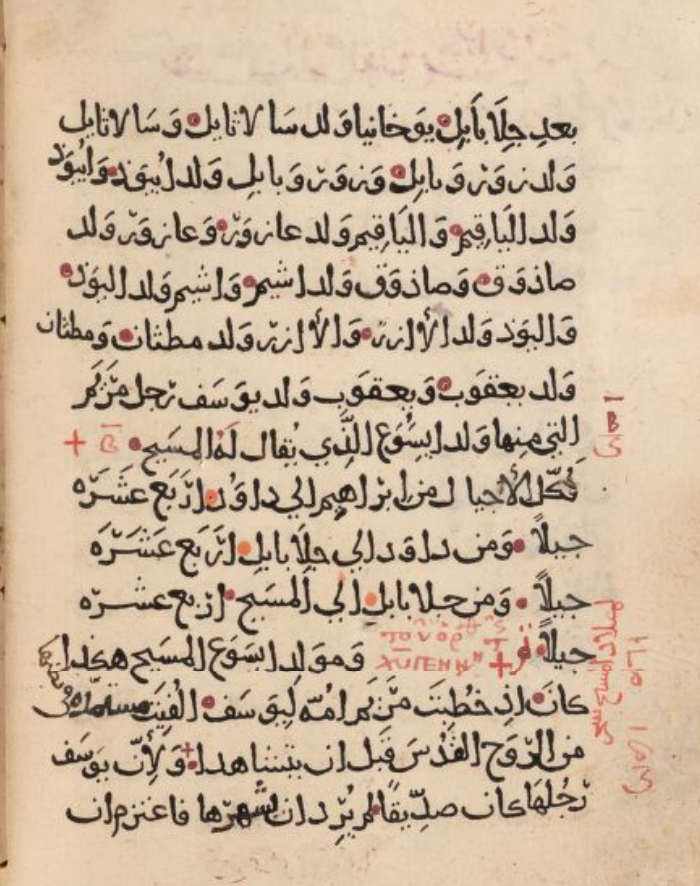 بعد جلا بابل يوخانيا ولد سالاثايل وسالاثايل
ولد زروبابل وزروبابل ولد ابيوذ وابيوذ
ولد الياقيم والياقيم ولد عازور وعازور ولد
صاذوق وصاذوق ولد اشيم واشيم ولد اليوذ
واليوذ ولد الازر والازر ولد مطثان ومطثان
ولد يعقوب ويعقوب ولد يوسف رجل مريم
التي منها ولد ايسوع الذي يقال له المسيح
فكل الاجيا ل من ابرهيم الي داوود اربع عشره
جيلا ومن داود الي جلا بابل اربع عشره
جيلا ومن جلا بابل الي المسيح اربع عشره
جيلا ومولد ايسوع المسيح هكذا
كان اذ خطبت مريم امه ليوسف الفيت
من الروح القدس قبل ان يتشاهدا ولان يوسف
رجلها كان صديقا لم يرد ان يشهرها فاعتزم ان